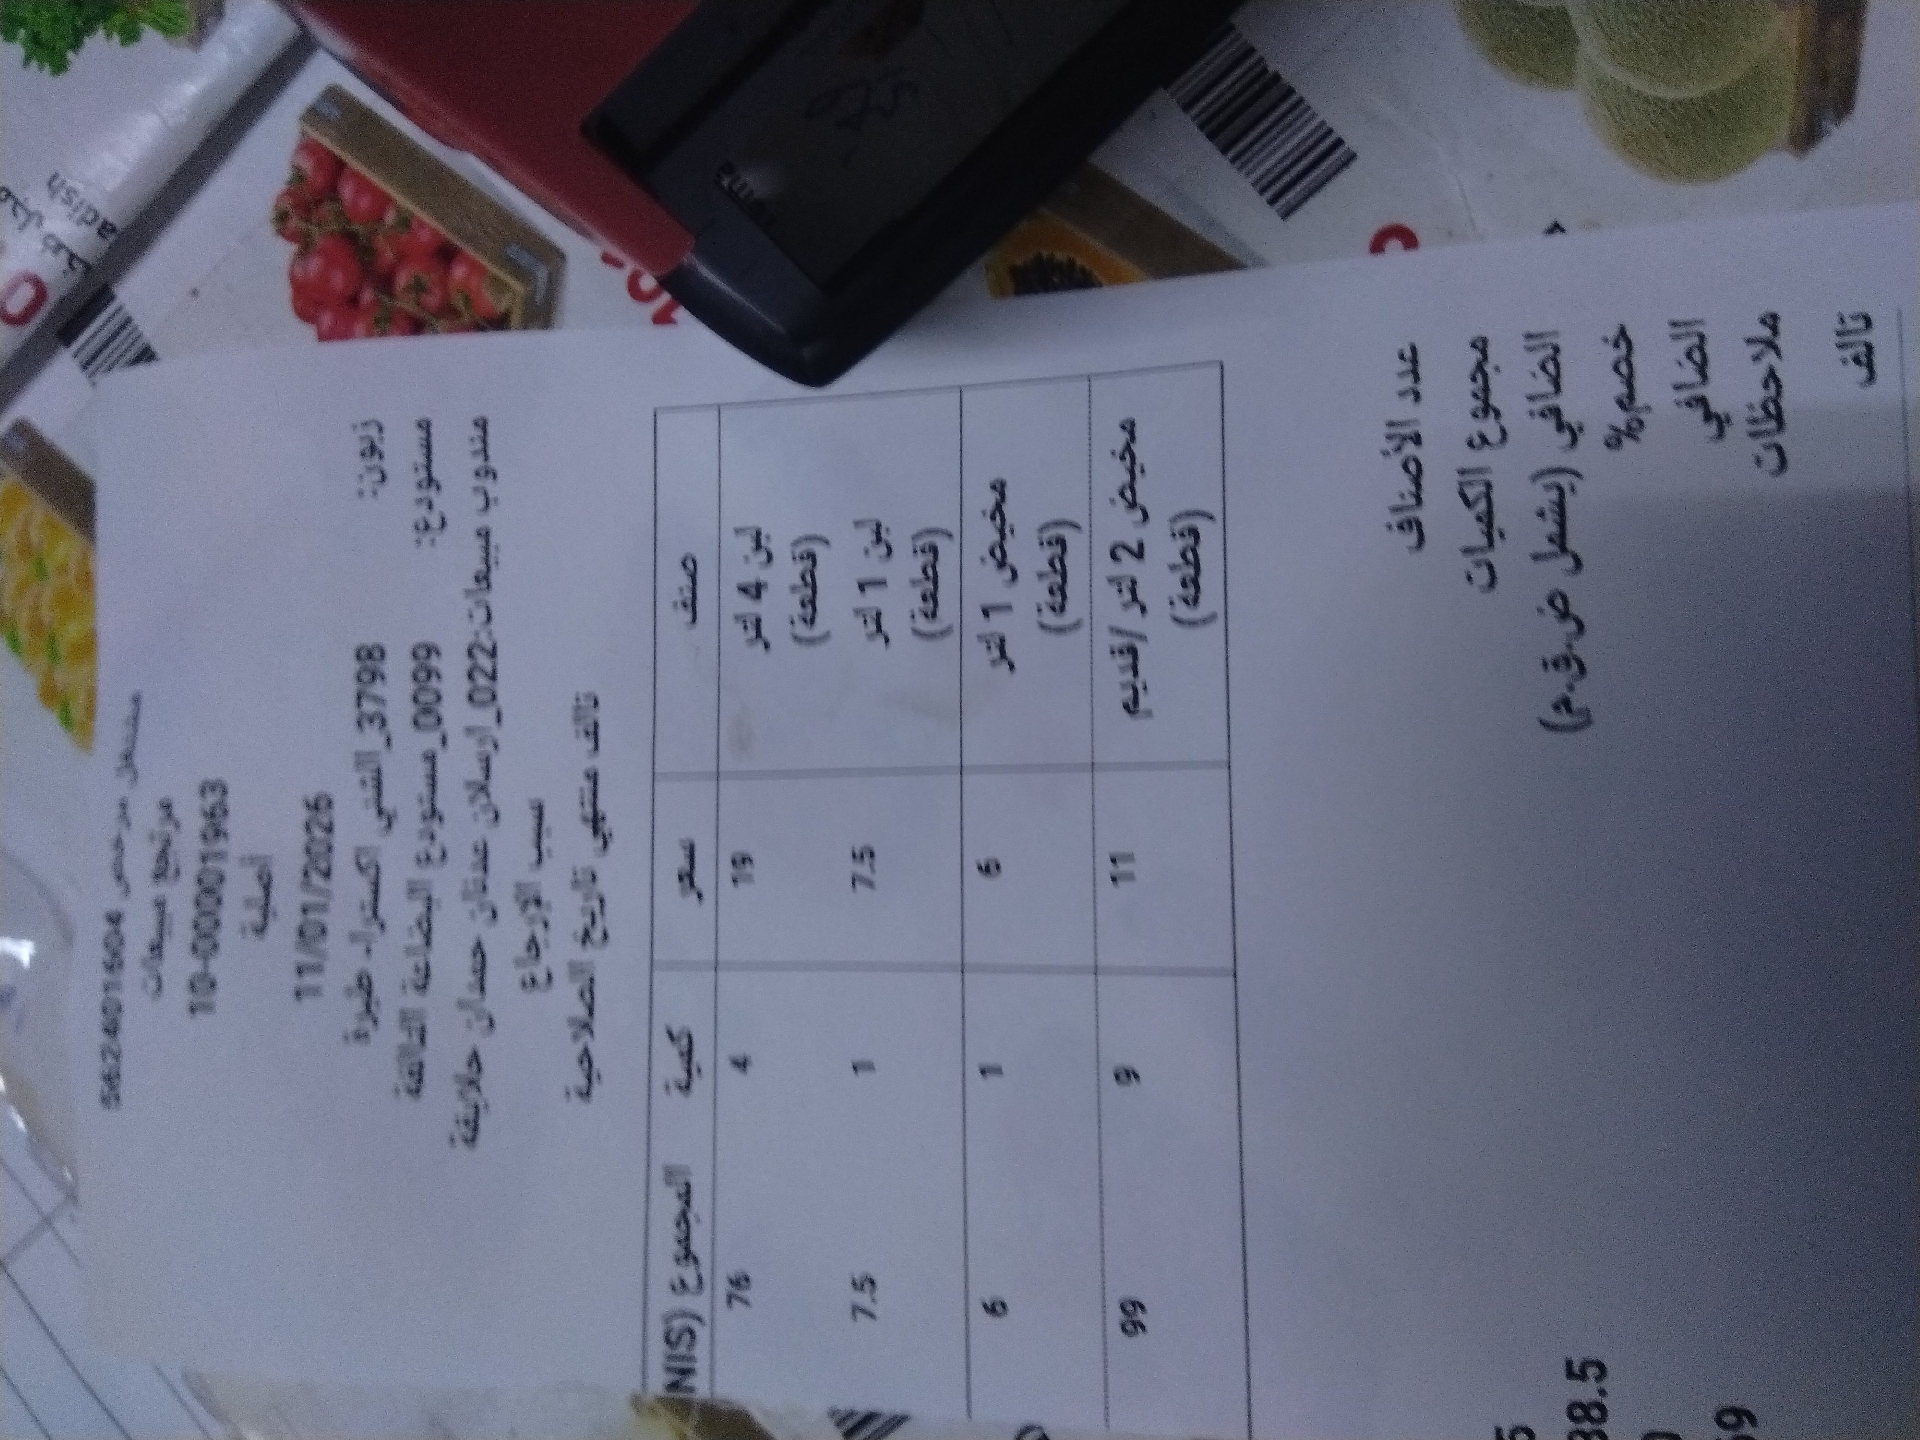 مشتغل مرخص 562401604
مرتجع مبيعات
10-000001963
أصلية
11/01/2026
زبون: 3798_الشني اكسترا- طيرة
مستودع: 0099_مستودع البضاعة التالفة
مندوب مبيعات:022_ارسلان عدنان حمدان حلايقة
سبب الإرجاع
تالف منتهي تاريخ الصلاحية
صنف سعر كمية المجموع (NIS
لبن 4 لتر 19 4 76
(قطعة)
لبن 1 لتر 7.5 1 7.5
(قطعة)
مخيض 1 لتر 6 1 6
(قطعة)
مخيض 2 لتر /قديم 11 9 99
(قطعة)
عدد الأصناف
مجموع الكميات 5
الصافي (يشمل ض.ق.م) 88.5
خصم%
الصافي
ملاحظات 59
تالف